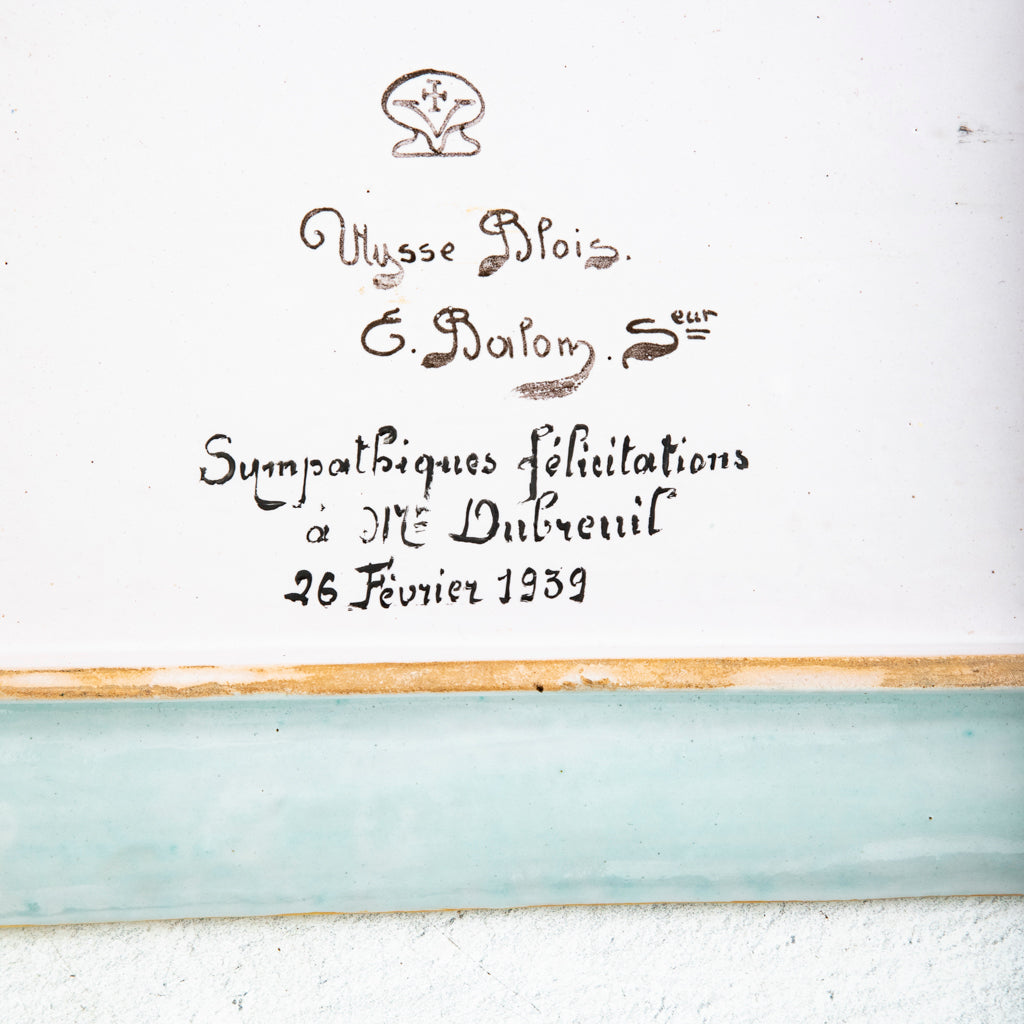 Ulysse Blois.
E. Balon. Seur
Sympathiques félicitations
à Mr Dubreuil
26 Février 1939